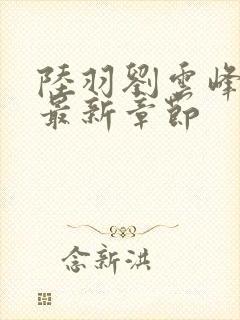 陸羽劉雲峰
最新章節
念新洪